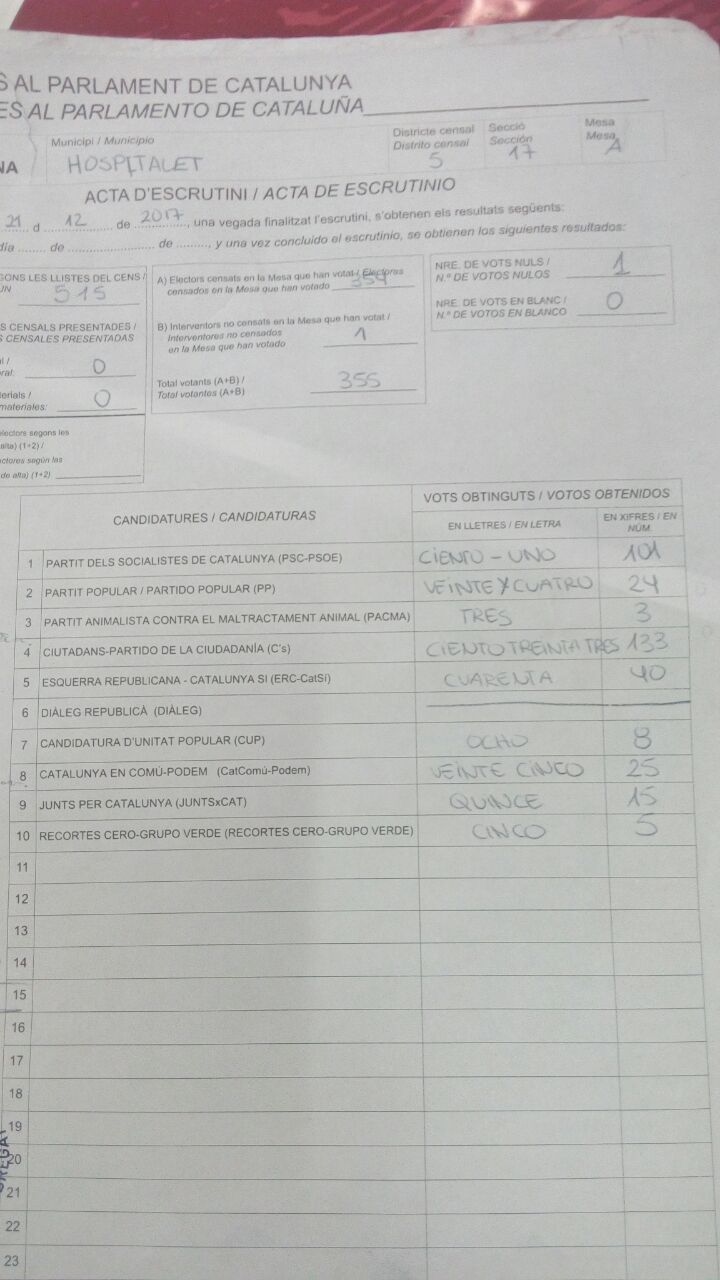 S AL PARLAMENT DE CATALUNYA
ES AL PARLAMENTO DE CATALUÑA
NA
Municipi / Municipio
HOSPITALET
Districte censal
Distrito censal
5
Secció
Sección
17
Mesa
Mesa
A
ACTA D'ESCRUTINI / ACTA DE ESCRUTINIO
21 d 12 de 2017, una vegada finalitzat l'escrutini, s'obtenen els resultats següents:
día ........ de ........................ de ........., y una vez concluido el escrutinio, se obtienen los siguientes resultados:
GONS LES LLISTES DEL CENS /
UN
515
S CENSALS PRESENTADES /
S CENSALES PRESENTADAS
al /
ral:
0
terials /
materiales:
0
electors segons les
alta) (1+2) /
ectores según las
de alta) (1+2)
A) Electors censats en la Mesa que han votat / Electores
censados en la Mesa que han votado
354
B) Interventors no censats en la Mesa que han votat /
Interventores no censados
en la Mesa que han votado
1
Total votants (A+B) /
Total votantes (A+B)
355
NRE. DE VOTS NULS /
N.º DE VOTOS NULOS
1
NRE. DE VOTS EN BLANC /
N.º DE VOTOS EN BLANCO
0
CANDIDATURES / CANDIDATURAS
VOTS OBTINGUTS / VOTOS OBTENIDOS
EN LLETRES / EN LETRA
EN XIFRES / EN
NÚM.
1 PARTIT DELS SOCIALISTES DE CATALUNYA (PSC-PSOE) CIENTO - UNO 101
2 PARTIT POPULAR / PARTIDO POPULAR (PP) VEINTE Y CUATRO 24
3 PARTIT ANIMALISTA CONTRA EL MALTRACTAMENT ANIMAL (PACMA) TRES 3
4 CIUTADANS-PARTIDO DE LA CIUDADANÍA (C's) CIENTO TREINTA TRES 133
5 ESQUERRA REPUBLICANA - CATALUNYA SÍ (ERC-CatSí) CUARENTA 40
6 DIÀLEG REPUBLICÀ (DIÀLEG)
7 CANDIDATURA D'UNITAT POPULAR (CUP) OCHO 8
8 CATALUNYA EN COMÚ-PODEM (CatComú-Podem) VEINTE CINCO 25
9 JUNTS PER CATALUNYA (JUNTSxCAT) QUINCE 15
10 RECORTES CERO-GRUPO VERDE (RECORTES CERO-GRUPO VERDE) CINCO 5
11
12
13
14
15
16
17
18
19
20
21
22
23